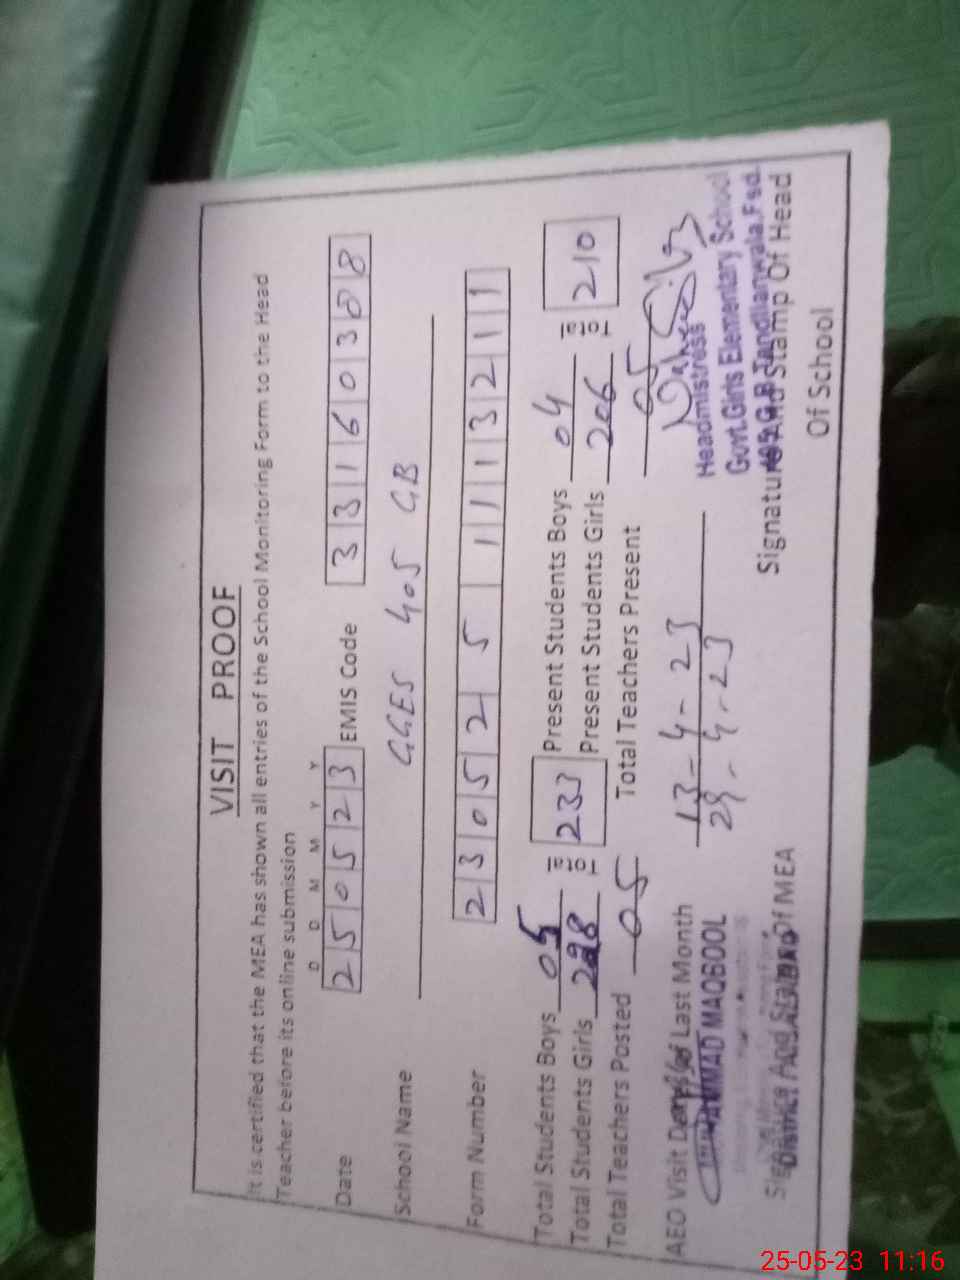 VISIT PROOF
It is certified that the MEA has shown all entries of the School Monitoring Form to the Head
Teacher before its online submission
D D M M Y Y
Date 2 5 0 5 2 3 EMIS Code 3 3 1 6 0 3 0 8
School Name GGES 405 GB
Form Number 2 3 0 5 2 5 1 1 1 3 2 1 1
Total Students Boys 05 Total 233 Present Students Boys 04 Total 210
Total Students Girls 228 Present Students Girls 206
Total Teachers Posted 05 Total Teachers Present 05
AEO Visit Dates of Last Month 13-4-23
29-4-23
MUHAMMAD MAQBOOL
Signature And Stamp Of MEA
Headmistress
Govt.Girls Elementary School
G.B Tandlianwala.Fsd.
Signature And Stamp Of Head
Of School
25-05-23 11:16